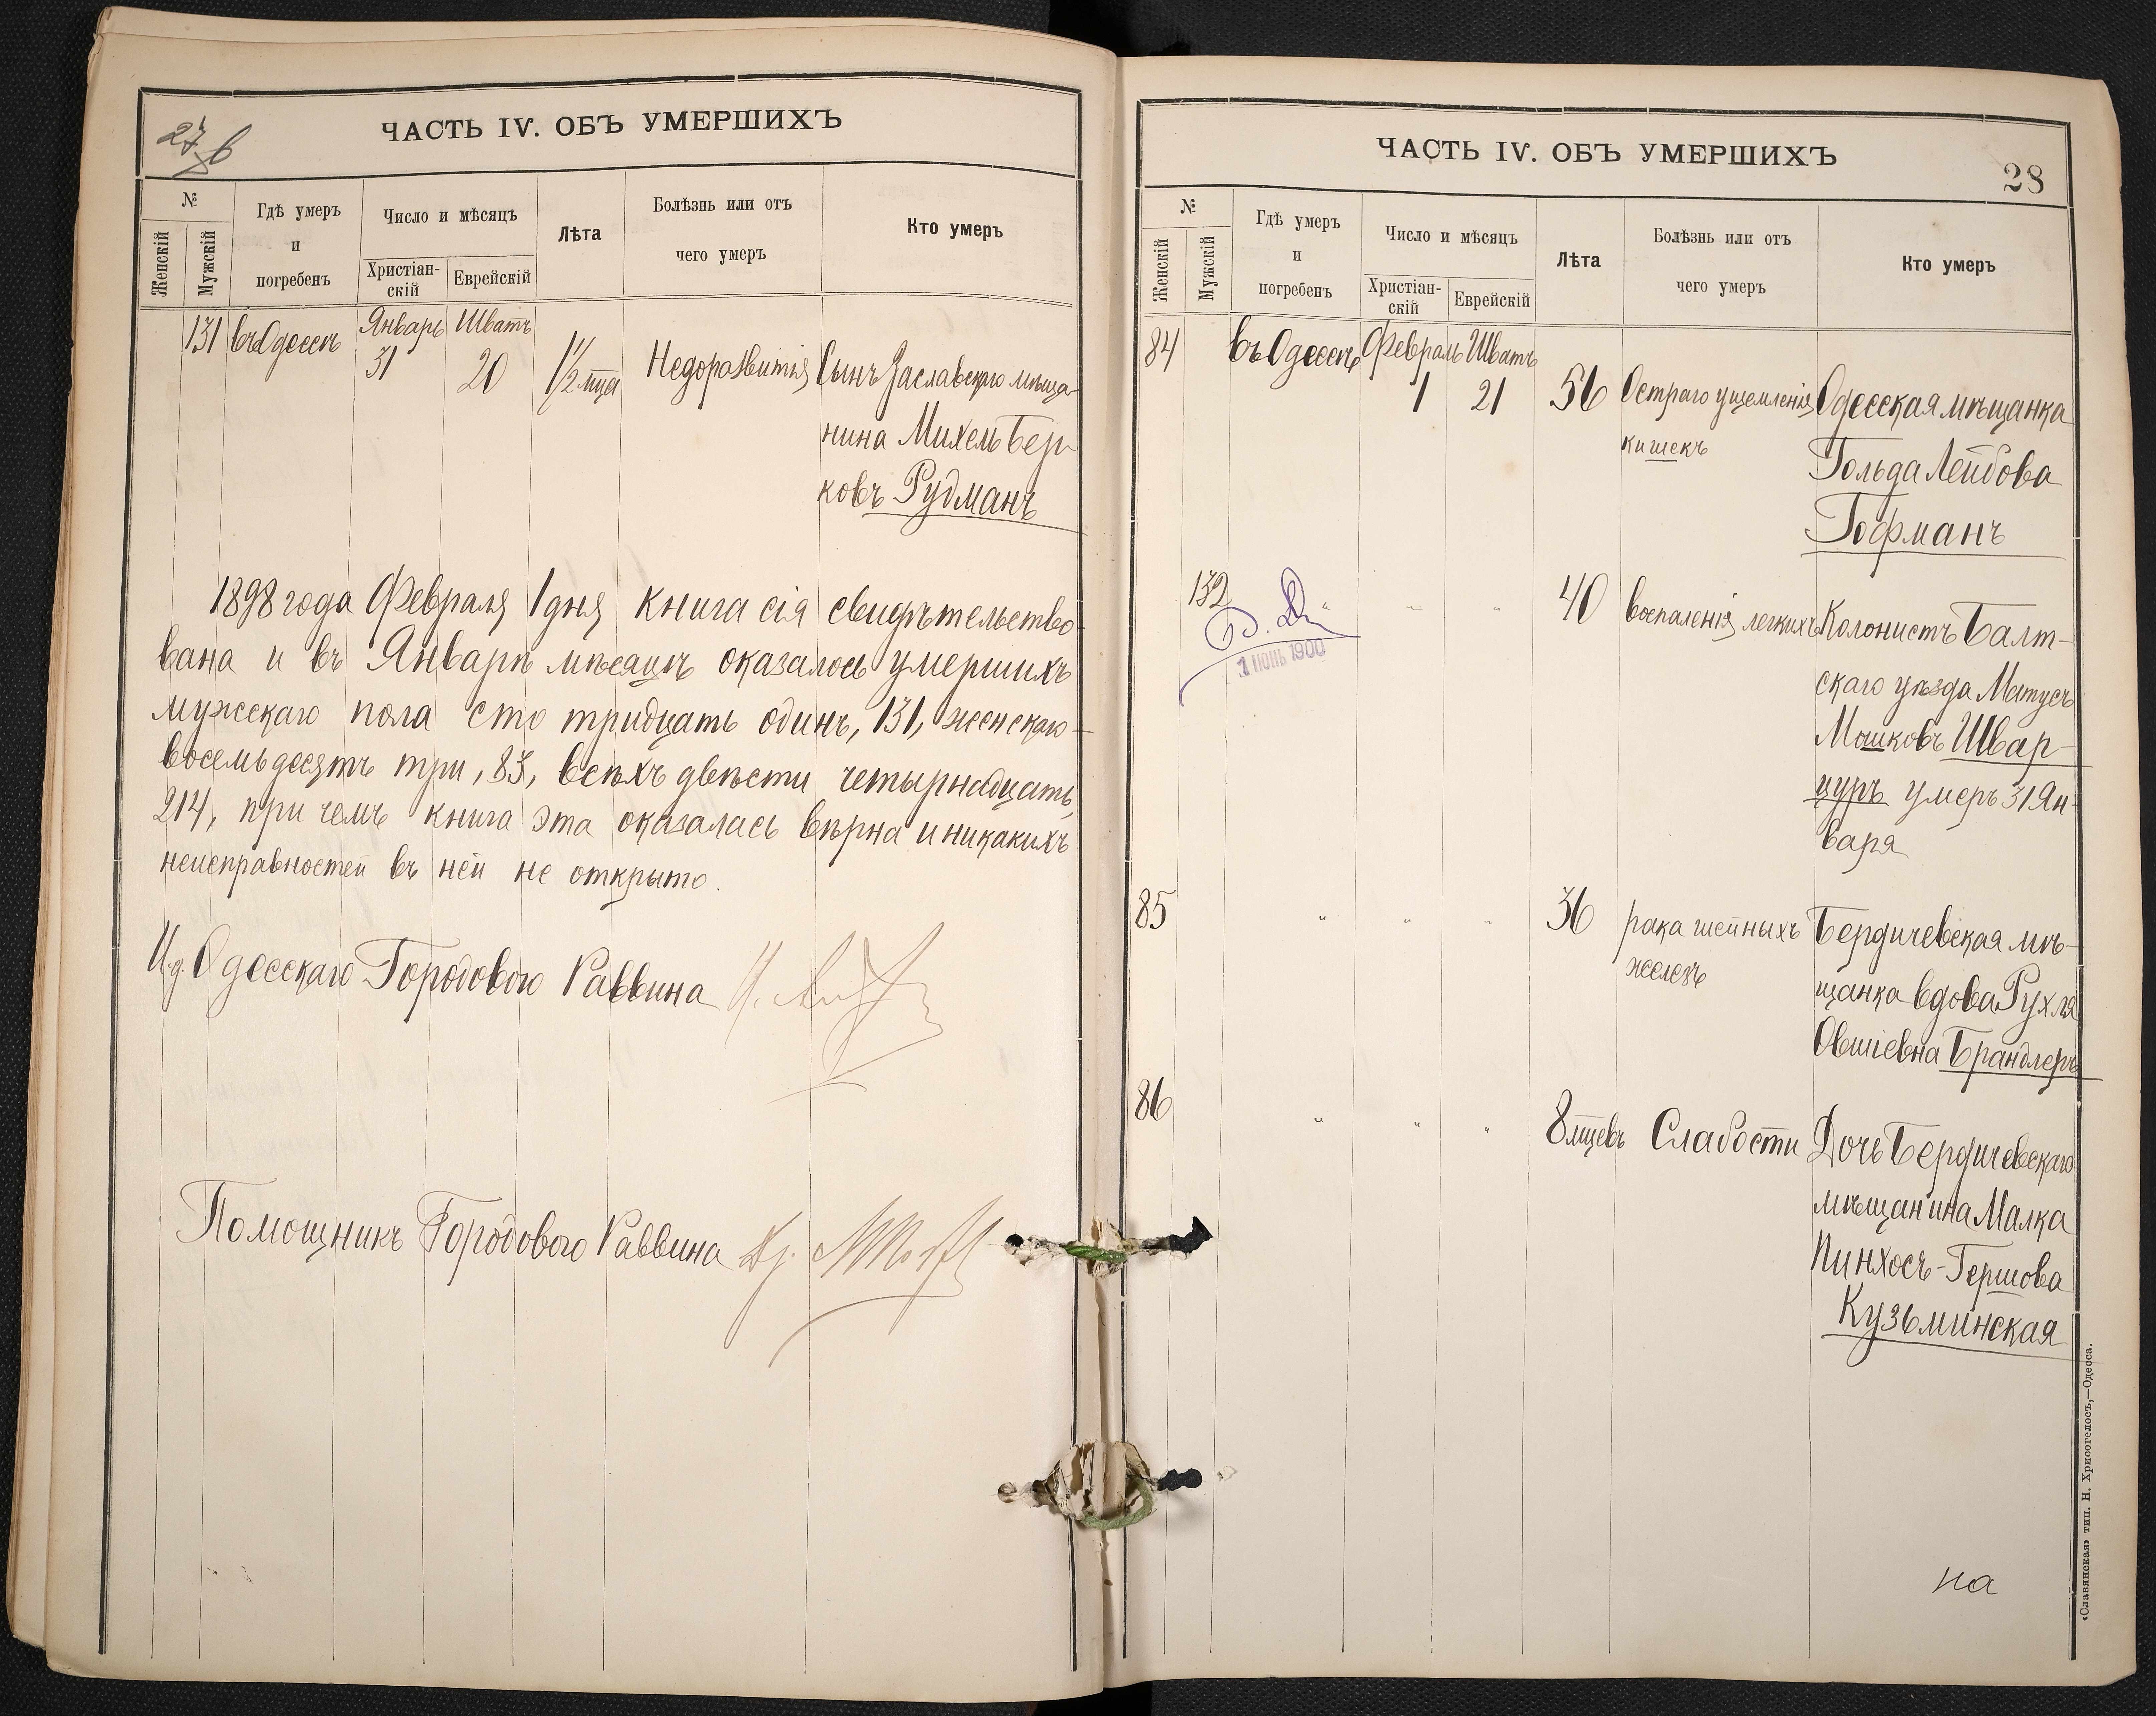 27 b
ЧАСТЬ IV. ОБЪ УМЕРШИХЪ
№
Женскій
Мужскій
Гдѣ умеръ
и
погребенъ
Число и мѣсяцъ
Христіан-
скій
Еврейскій
Лѣта
Болѣзнь или отъ
чего умеръ
Кто умеръ
131 въ Одессѣ Январь Шватъ
31 20 1½ мца Недоразвитія Сынъ Заславскаго мѣща-
нина Михель Бер-
ковъ Рудманъ
1898 года Февраля 1 дня книга сія свидѣтельство-
вана и въ Январѣ мѣсяцѣ оказалось умершихъ
мужскаго пола сто тридцать одинъ, 131, женскаго
восемьдесятъ три, 83, всѣхъ двѣсти четырнадцать,
214, при чемъ книга эта оказалась вѣрна и никакихъ
неисправностей въ ней не открыто.
И. д. Одесскаго Городового Раввина
Помощникъ Городового Раввина
ЧАСТЬ IV. ОБЪ УМЕРШИХЪ
28
№
Женскій
Мужскій
Гдѣ умеръ
и
погребенъ
Число и мѣсяцъ
Христіан-
скій
Еврейскій
Лѣта
Болѣзнь или отъ
чего умеръ
Кто умеръ
84 въ Одессѣ Февраль Шватъ
1 21 56 Остраго ущемленія Одесская мѣщанка
кишекъ
Гольда Лейбова
Гофманъ
132 " " " 40 воспаленія легкихъ Колонистъ Балт-
1 ІЮНЬ 1900
скаго уѣзда Матусъ
Мошковъ Швар-
цуръ умеръ 31 Ян-
варя
85 " " " 36 рака шейныхъ Бердичевская мѣ-
железъ
щанка вдова Рухля
Овшіевна Брандлеръ
86 " " " 8 мцевъ Слабости Дочь Бердичевскаго
мѣщанина Малка
Пинхосъ-Гершова
Кузьминская
на
«Славянская» тип. Н. Хрисогелосъ,—Одесса.